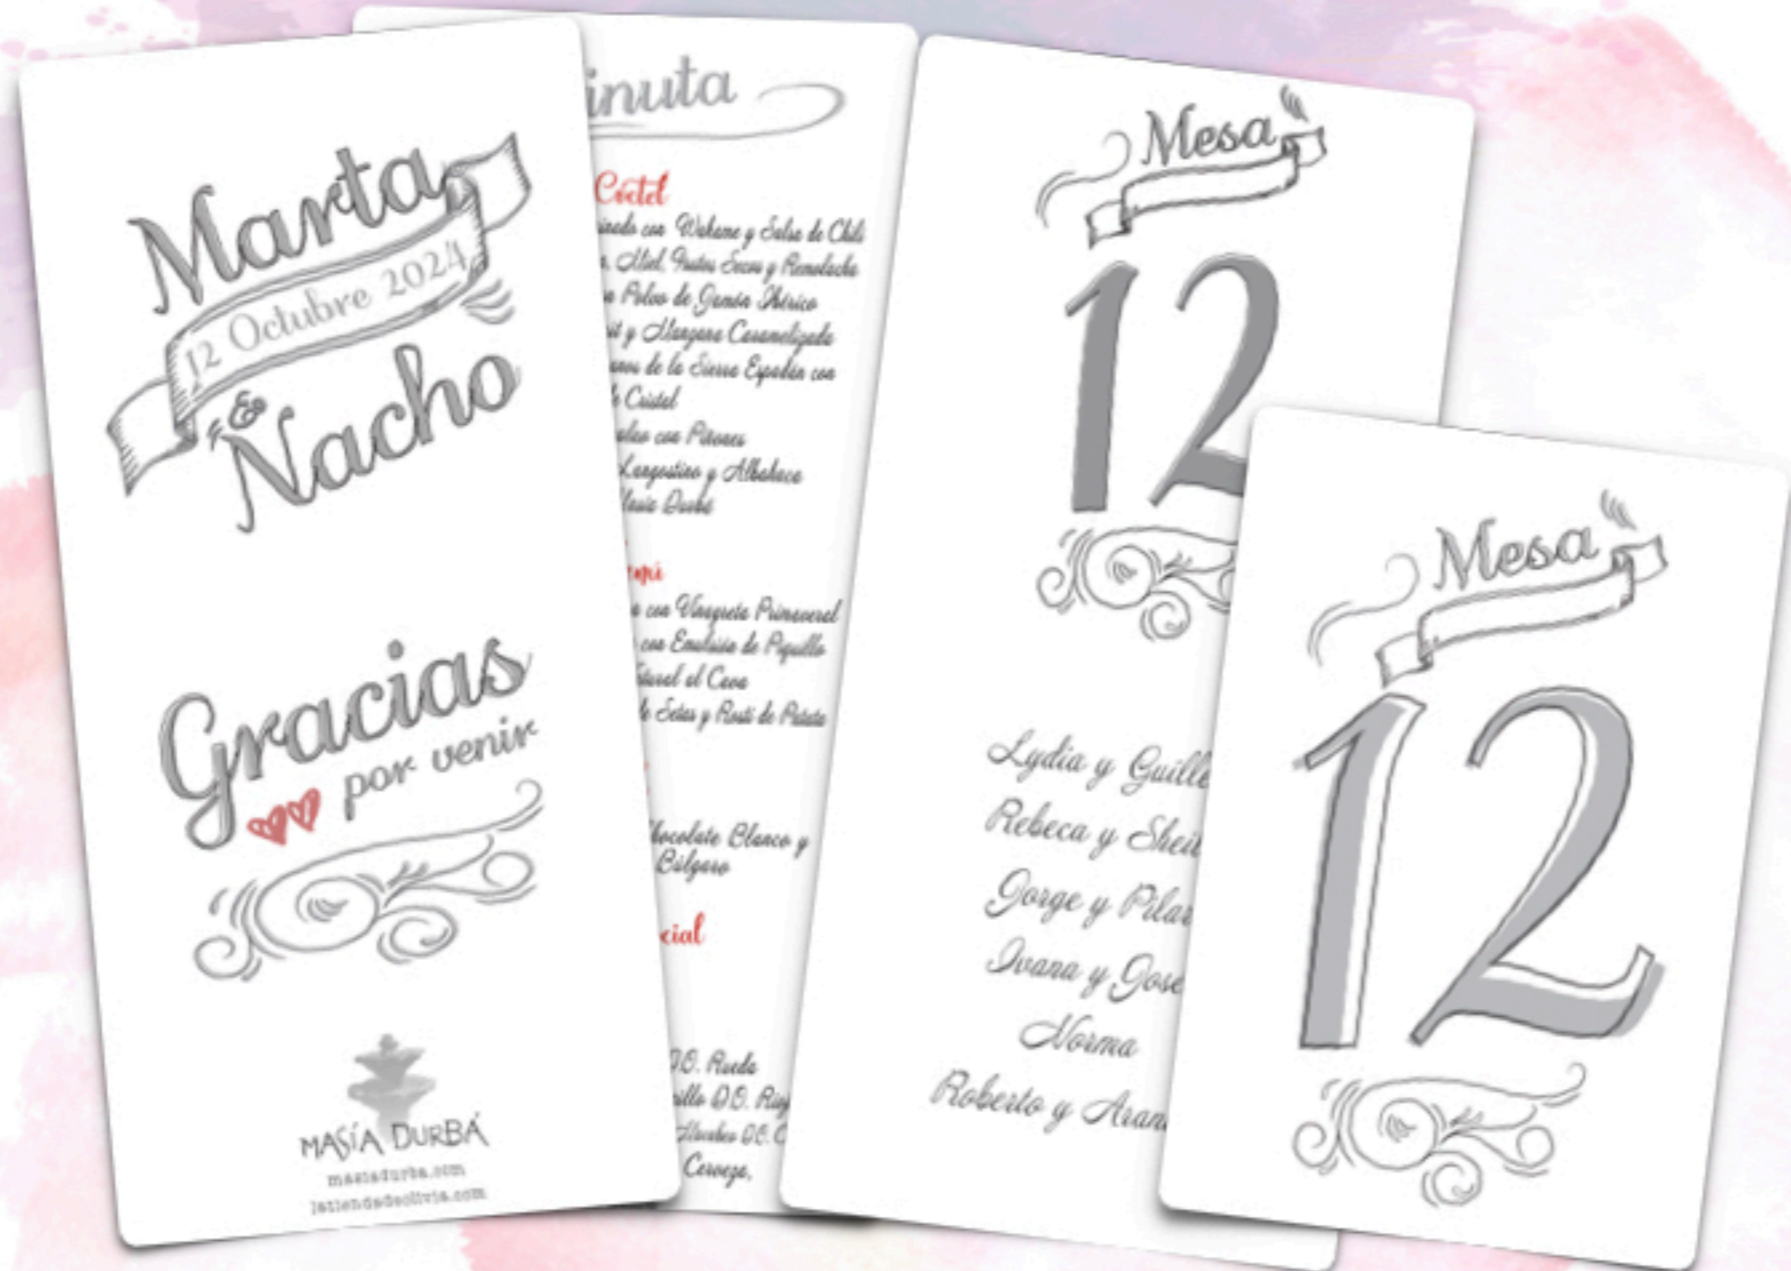 Marta
12 Octubre 2024
& Nacho
Gracias
por venir
MASÍA DURBÁ
masiadurba.com
latiendadeolivia.com
inuta
Cóctel
con Wakame y Salsa de Chili
Miel, Frutos Secos y Remolacha
Polvo de Jamón Ibérico
y Manzana Caramelizada
de la Sierra Espadán con
Cristal
con Piñones
Langostino y Albahaca
Masía Durbá
enú
con Vinagreta Primaveral
con Emulsión de Piquillo
al Cava
de Setas y Rosti de Patata
Chocolate Blanco y
Búlgaro
cial
D.O. Rueda
D.O. Rioj
D.O. C
Cerveza,
Mesa
12
Lydia y Guille
Rebeca y Sheil
Jorge y Pilar
Ivana y Jose
Norma
Roberto y Aran
Mesa
12